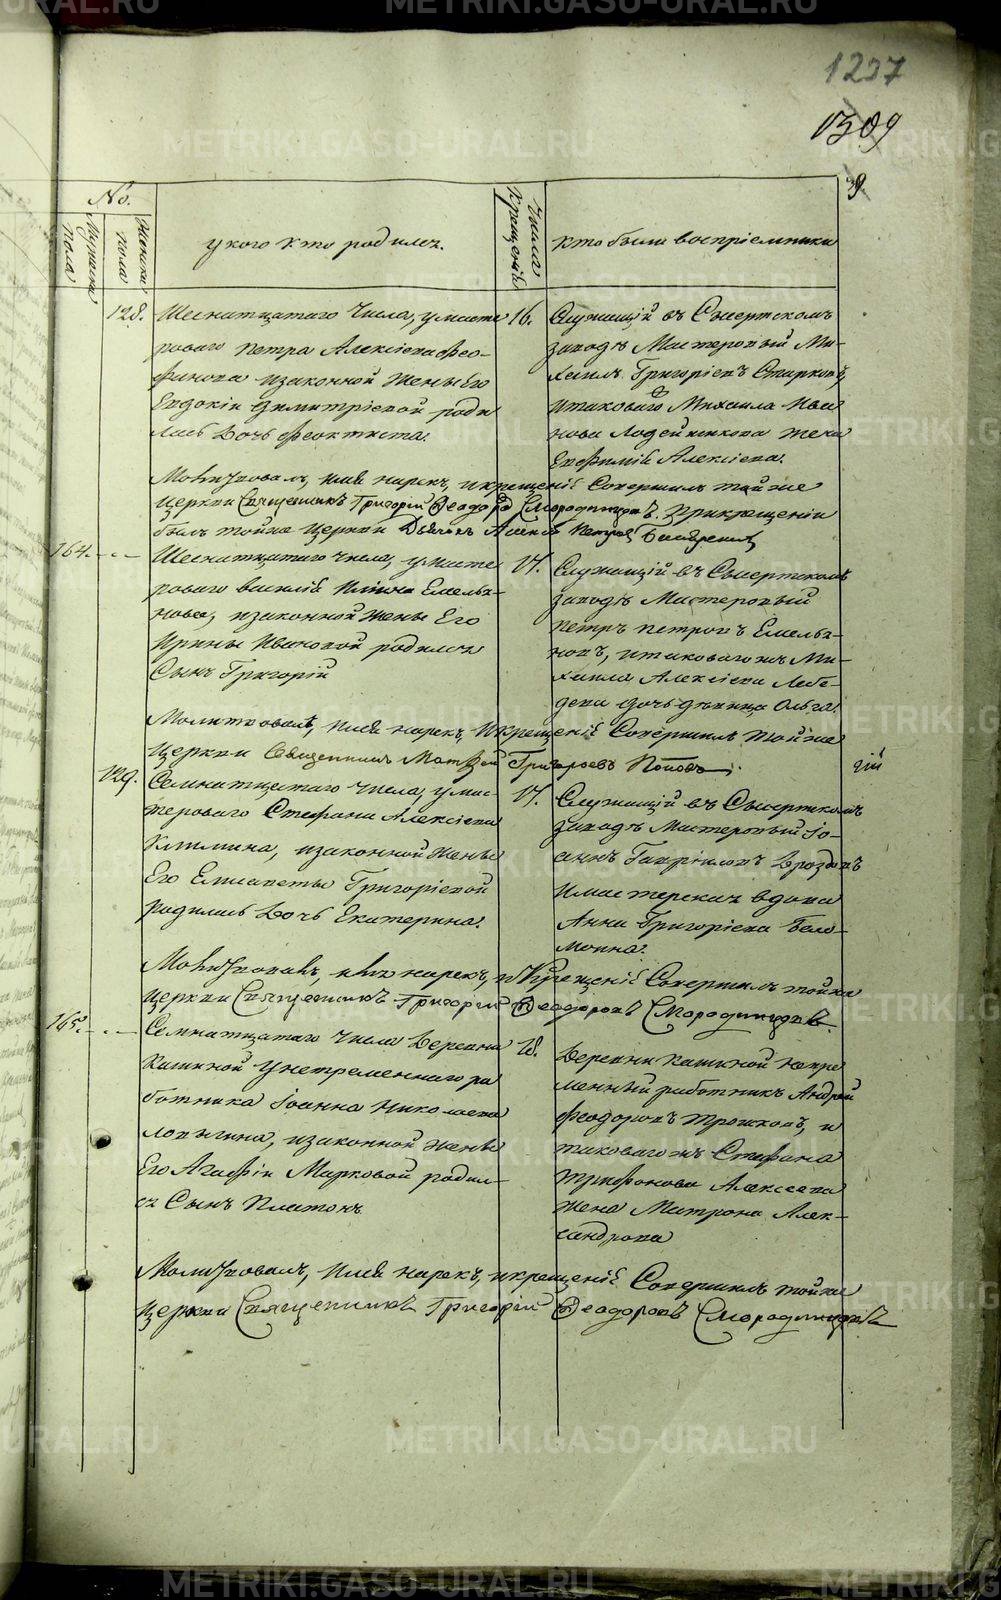 METRIKI.GASO-URAL.RU
1237
1309
9
No.
Мужеска пола
Женска пола
у кого кто родился.
Числа Крещенiй
кто были воспрiемники
128.
Шеснатцатаго Числа, умасте
роваго Петра Алексiева Фео-
фанова изаконной жены Его
Евдокiи Димитрiевой роди
лась Дочь Феоктиста.
16.
Служащiй въ Сысертскомъ
заводѣ Мастеровый Ми-
хаилъ Григорiевъ Старковъ,
итаковаго Михаила Ива
нова Лодейщикова жена
Евфимiя Алексiева.
Молитвовалъ, имя нарекъ, икрещенiе Совершилъ тойже
Церкви Священникъ Григорiй Феодоровъ Смородинцовъ прикрещенiи
былъ тойже Церкви Дьячокъ Петровъ
164.
Шеснатцатаго числа, умасте
роваго Василiя Ильина Емелья-
нова, изаконной жены Его
Ирины Ивановой родился
Сынъ Григорiй
17.
Служащiй въ Сысертскомъ
заводѣ Мастеровый
Петръ Петровъ Емелья-
новъ, итаковагожъ Ми-
хаила Алексiева Лебе-
дева дочь дѣвица Ольга.
Молитвовалъ, имя нарекъ, икрещенiе Совершилъ тойже
Церкви Священникъ Матѳей Григорьевъ Поповъ.
гiй
129.
Семнатцатаго числа, умас-
тероваго Стефана Алексiева
Климина, изаконной жены
Его Елисаветы Григорiевой
родилась Дочь Екатерина.
17.
Служащiй въ Сысертскомъ
заводѣ Мастеровый Iо-
аннъ Гаврiиловъ Дроздовъ
имастерская вдова
Анна Григорiева Бело-
моина.
Молитвовавъ, имя нарекъ, и крещенiе Совершилъ тойже
Церкви Священникъ Григорiй Феодоровъ Смородинцовъ.
165.
Семнатцатаго Числа Деревни
Кашиной унепременнаго ра
ботника Iоанна Николаева
Лопыгина, изаконной жены
Его Агафiи Марковой родил-
ся Сынъ Платонъ
18.
Деревни Кашиной Непре
менный работникъ Андрей
Феодоровъ Трошковъ, и
таковагожъ Стефана
Трифонова Алексеева
жена Матрона Алек-
сандрова
Молитвовалъ, имя нарекъ, икрещенiе Совершилъ тойже
Церкви Священникъ Григорiй Феодоровъ Смородинцовъ